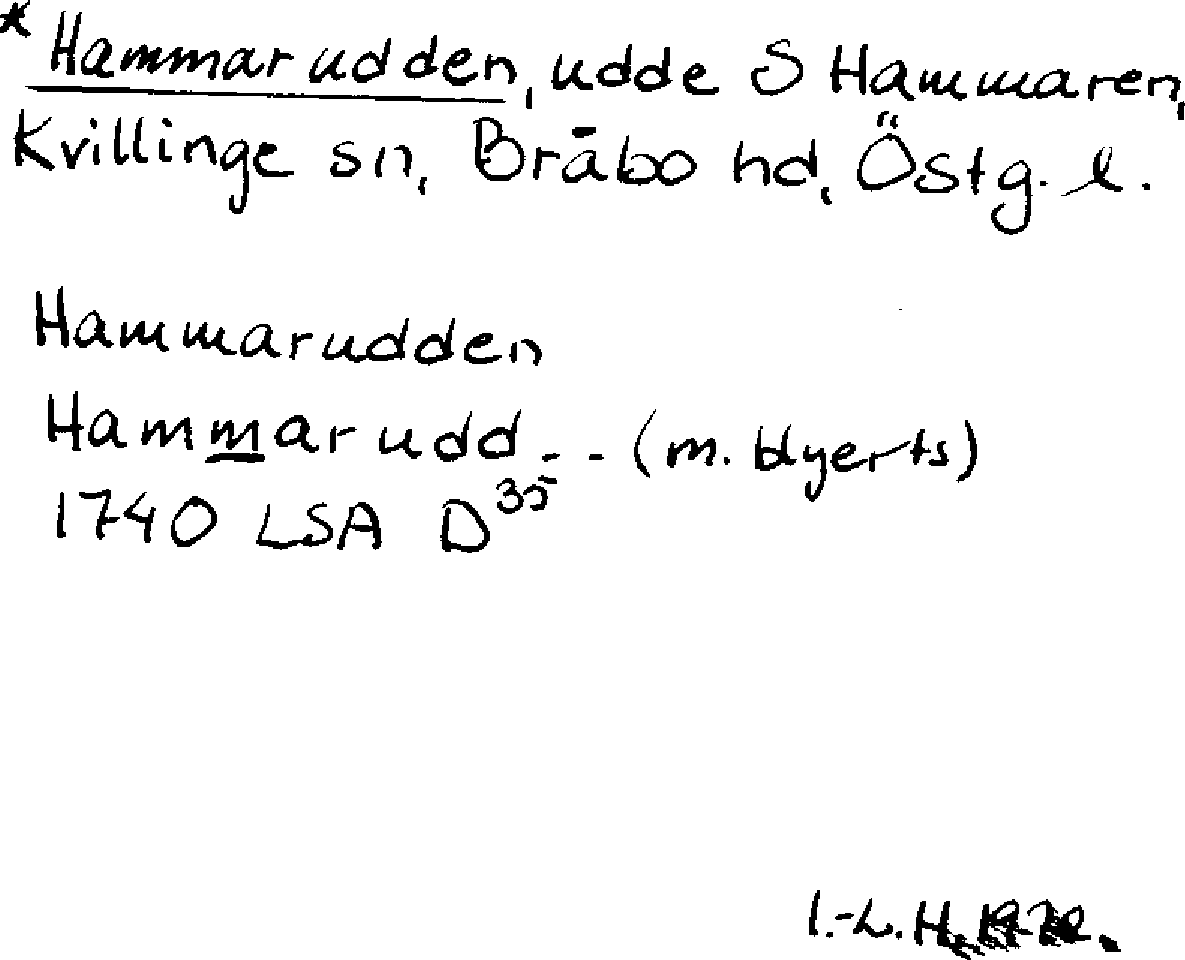 * Hammarudden, udde S Hammaren,
Kvillinge sn, Bråbo hd, Östg. l.
Hammarudden
Hammarudd - - (m. blyerts)
1740 LSA D35
I.-L. H.